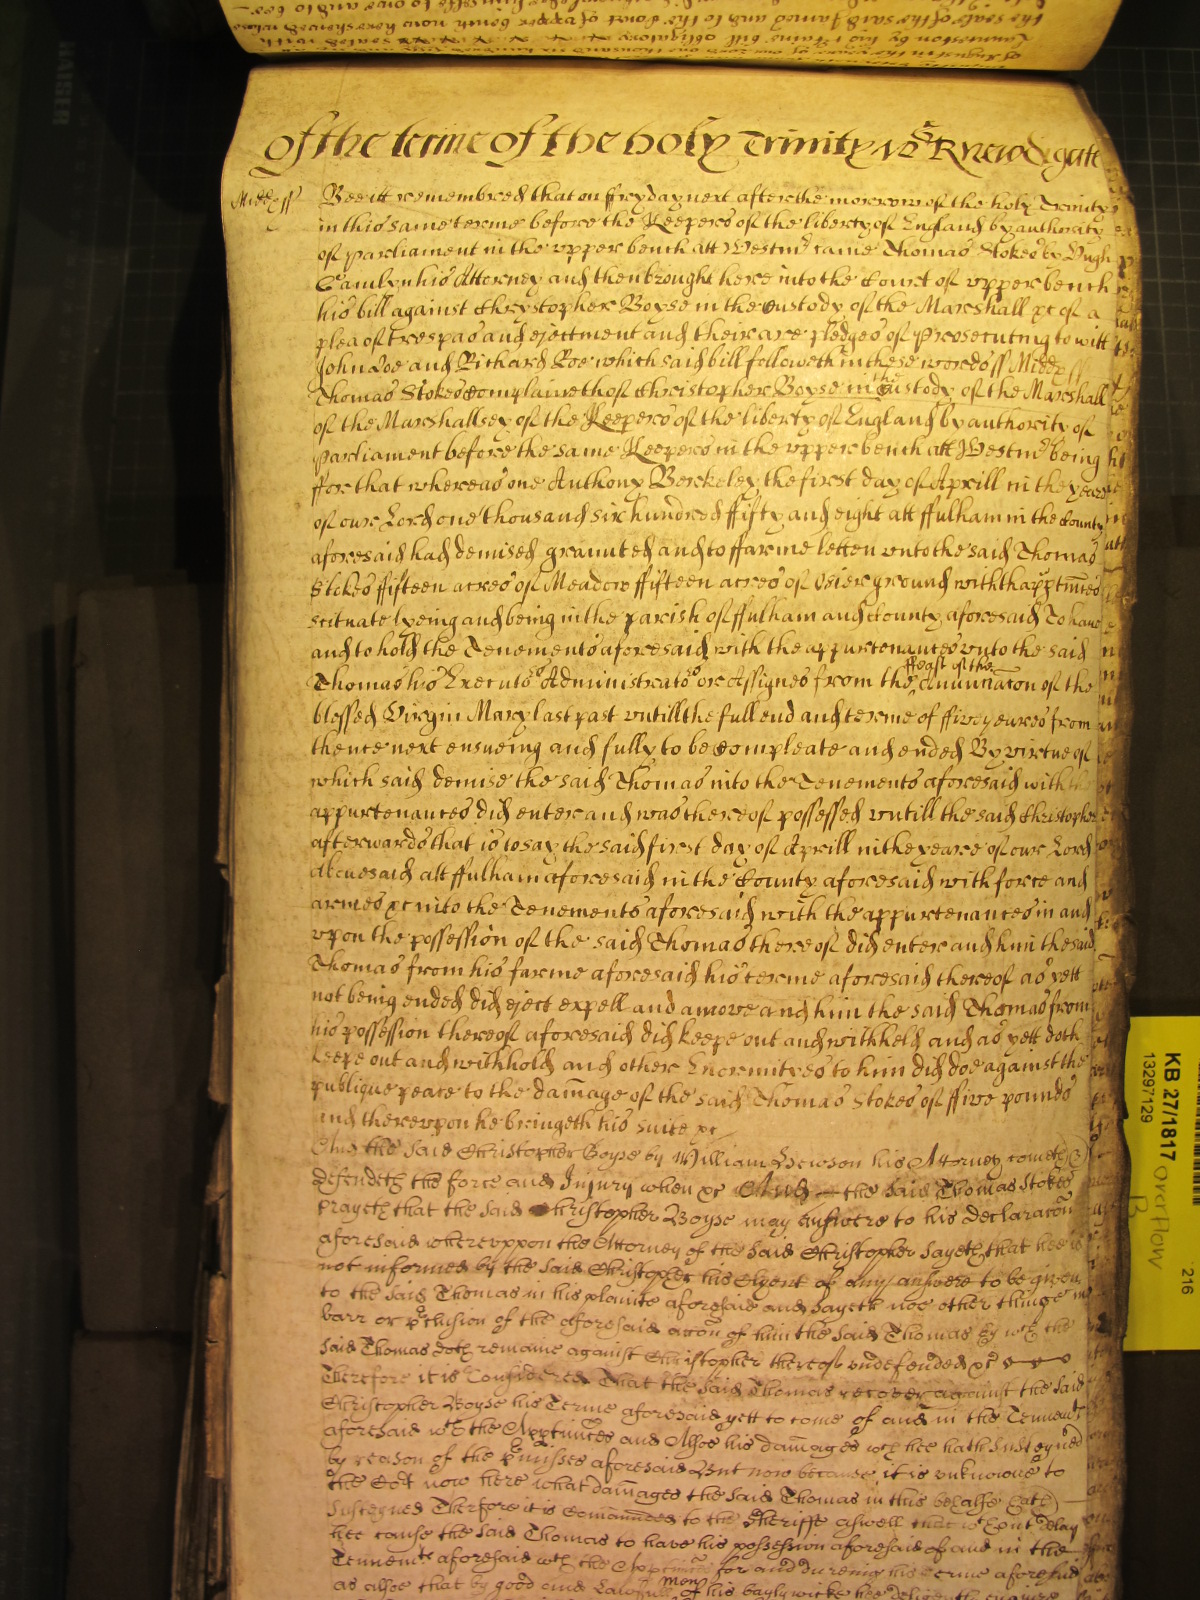 of the terme of the holy Trinity Ao Sr R Newdigate
Midd ss Bee itt remembred that on ffryday next after the morrow of the holy Trinity
in this same terme before the Keepers of the liberty of England by authority
of parliament in the upper bench att Westmr came Thomas Stokes by Hugh
his Attorney and then brought here into the Court of upper bench
his bill against Chrystopher Boyse in the Custody of the Marshall &c of a
plea of trespas and ejectment and their are pledges of prosecuting to witt
John Doe and Richard Roe which said bill followeth in these words ss Midd ss
Thomas Stokes Complaineth of Christopher Boyse in the Custody of the Marshall
of the Marshallsey of the Keepers of the liberty of England by authority of
Parliament before the same Keepers in the upper bench att Westmr being
ffor that whereas one Anthony Berkeley the first day of Aprill in the yeare
of our Lord one thousand six hundred ffifty and eight att ffulham in the County
aforesaid had demised graunted and to ffarme letten unto the said Thomas
Stokes ffifteen acres of Meadow ffifteen acres of Osier ground with thapptnnces
scituate lyeing and being in the parish of ffulham and County aforesaid To have
and to hold the Tenements aforesaid with the appurtenances unto the said
Thomas his Executors Administrators or Assignes from the ffeast of the Anunciacon of the
blessed Virgin Mary last past untill the full end and terme of ffive yeares from
thence next ensueing and fully to be Compleate and ended By virtue of
which said demise the said Thomas into the Tenements aforesaid with the
appurtenances did enter and was thereof possessed untill the said Christopher
afterwards that is to say the said first day of Aprill in the yeare of our Lord
abovesaid att ffulham aforesaid in the County aforesaid with force and
armes &c into the Tenements aforesaid with the appurtenances in and
upon the possession of the said Thomas thereof did enter and him the said
Thomas from his farme aforesaid his terme aforesaid thereof as yett
not being ended did eject expell and amove and him the said Thomas from
his possession thereof aforesaid did keepe out and withheld and as yett doth
keepe out and withhold and other Enormityes to him did doe against the
publique peace to the damage of the said Thomas Stokes of ffive pounds
and thereupon he bringeth his suite &c
And the said Christopher Boyse by William Hewson his Attorney cometh &
defendeth the force and Injury when &c And the said Thomas Stokes
prayeth that the said Christopher Boyse may answere to his declaracon
aforesaid whereuppon the Attorney of the said Christopher sayeth that hee is
not informed by the said Christopher his Clyent of any answere to be given
to the said Thomas in his plainte aforesaid and sayeth noe other thinge in
barr or pclusion of the aforesaid accon of him the said Thomas by wch the
said Thomas doth remaine against Christopher thereof undefended &c
Therefore it is Considered That the said Thomas recover against the said
Christopher Boyse his Terme aforesaid yett to come of and in the Tennemts
aforesaid wth the Apptinnces and Alsoe his damages wch hee hath Susteyned
by reason of the pmisses aforesaid But now because it is unknowne to
the Cort now here what damages the said Thomas in this behalfe hath
Susteyned Therfore it is Comannded to the Sheriffe aswell that wthout delay
hee cause the said Thomas to have his possession aforesaid of and in the
Tennemts aforesaid wth the Apptinnces for and dureing his terme aforesaid
as alsoe that by good and Lawfull men of his baylywicke hee deligently enquire
KB 27/1817
13297129
overflow
B
216